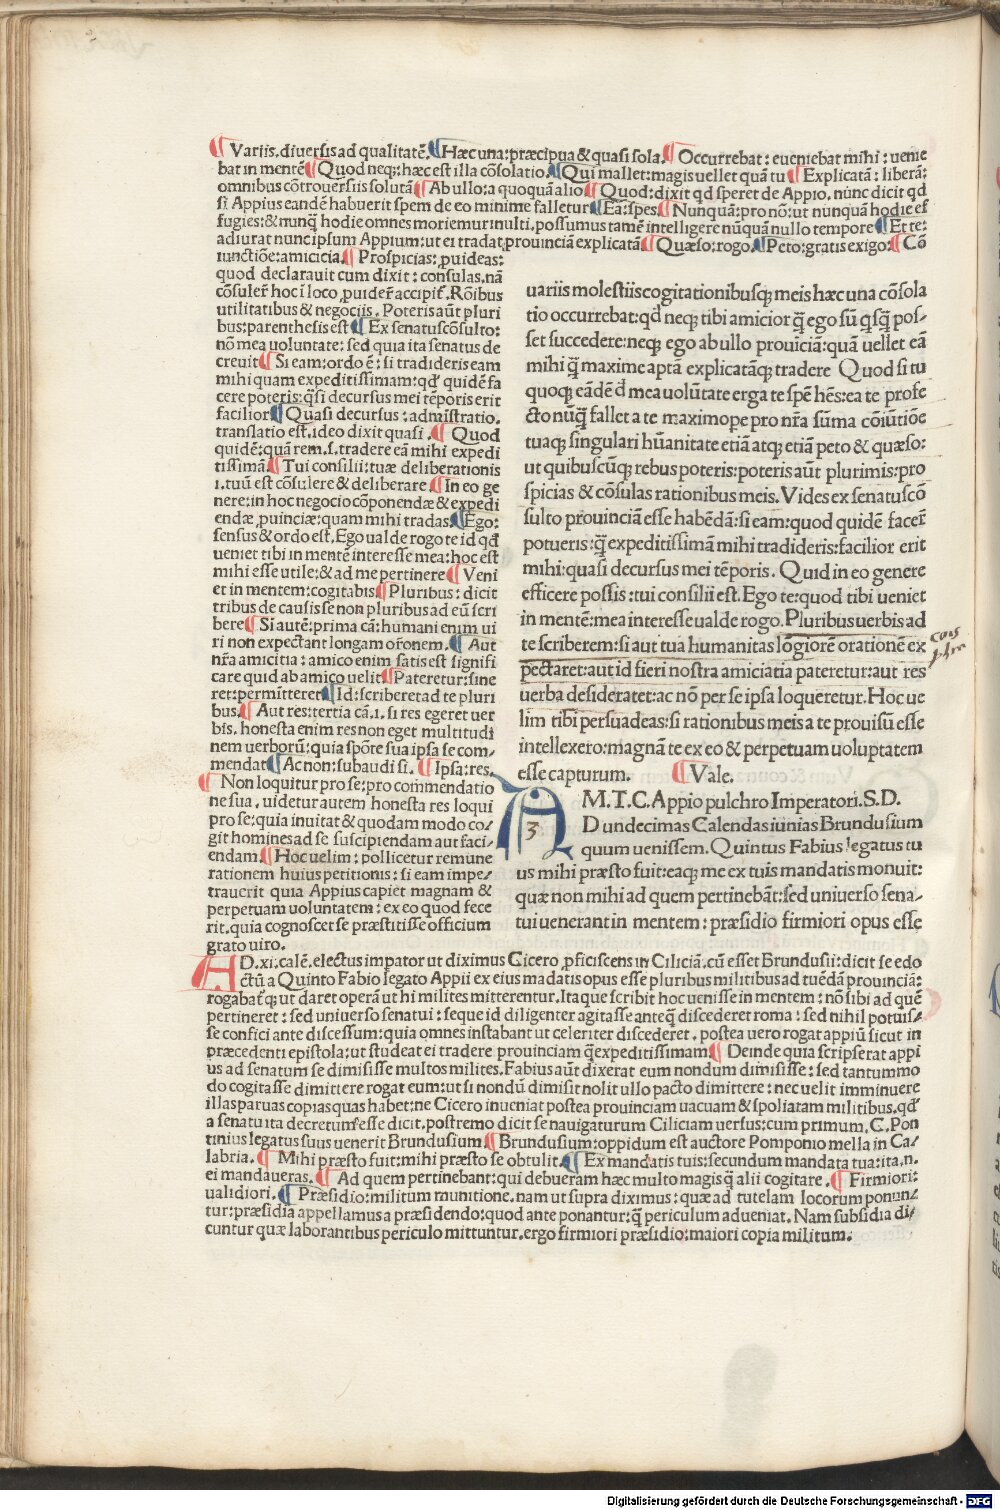 ¶ Variis.diuersis ad qualitatē.¶Hæc una:præcipua & quasi sola.¶ Occurrebat:eueniebat mihi:uenie
bat in mentē¶Quod neq;:hæc est illa cōsolatio.¶Qui mallet:magis uellet quā tu¶Explicatā:liberā:
omnibus cōtrouersiis solutā¶Ab ullo:a quoquā alio¶Quod:dixit qđ speret de Appio,nūc dicit qđ
si Appius eandē habuerit spem de eo minime falletur¶Eā:spes¶Nunquā:pro nō:ut nunquā hodie ef
fugies:& nunq̄ hodie omnes moriemur inulti,possumus tamē intelligere nūquā nullo tempore¶Et te:
adiurat nunc ipsum Appium:ut ei tradat,prouinciā explicatā¶Quæso:rogo.¶Peto:gratis exigo:¶Cō
iunctiōe:amicicia.¶ Prospicias:,puideas:
quod declarauit cum dixit: consulas.nā
cōsuler̄ hoc ī loco ,puider̄ accipit̄. Rōibus
utilitatibus & negociis. Poteris aūt pluri
bus:parenthesis est¶ Ex senatuscōsulto:
nō mea uoluntate: sed quia ita senatus de
creuit¶ Si eam:ordo ē: si tradideris eam
mihi quam expeditissimam:qđ quidē fa
cere poteris:q̄si decursus mei tēporis erit
facilior¶Quasi decursus:admīstratio.
translatio est.ideo dixit quasi.¶ Quod
quidē:quā rem.s.tradere eā mihi expedi
tissimā¶Tui consilii:tuæ deliberationis
i.tuū est cōsulere & deliberare¶In eo ge
nere:in hoc negocio cōponendæ & expedi
endæ ,puinciæ:quam mihi tradas¶Ego:
sensus & ordo est.Ego ualde rogo te id qđ
ueniet tibi in mentē interesse mea:hoc est
mihi esse utile:& ad me pertinere¶ Veni
et in mentem:cogitabis¶Pluribus: dicit
tribus de causis se non pluribus ad eū scri
bere¶ Si autē:prima cā:humani enim ui
ri non expectant longam or̄onem.¶ Aut
nr̄a amicitia: amico enim satis est signifi
care quid ab amico uelit¶Pateretur:sine
ret:permitteret¶Id:scriberet ad te pluri
bus.¶ Aut res:tertia cā.i. si res egeret uer
bis. honesta enim res non eget multitudi
nem uerborū:quia spōte sua ipsa se com-
mendat¶Ac non:subaudi si. ¶Ipsa:res.
¶ Non loquitur pro se:pro commendatio
ne sua. uidetur autem honesta res loqui
pro se:quia inuitat & quodam modo co-
git homines ad se suscipiendam aut faci-
endam.¶Hoc uelim: pollicetur remune
rationem huius petitionis: si eam impe-
trauerit quia Appius capiet magnam &
perpetuam uoluntatem: ex eo quod fece
rit.quia cognoscet se præstitisse officium
grato uiro.
uariis molestiis cogitationibusq; meis hæc una cōsola
tio occurrebat:qđ neq; tibi amicior q̄ ego sū q̄sq̄ pos-
set succedere:neq; ego ab ullo prouīciā:quā uellet eā
mihi q̄ maxime aptā explicatāq; tradere Quod si tu
quoq; eādē đ mea uolūtate erga te spē hēs:ea te profe
cto nūq̄ fallet a te maximope pro nr̄a sūma cōiūtiōe
tuaq; singulari hūanitate etiā atq; etiā peto & quæso:
ut quibuscūq; rebus poteris:poteris aūt plurimis:pro
spicias & cōsulas rationibus meis.Vides ex senatuscō
sulto prouinciā esse habēdā:si eam:quod quidē facer̄
potueris:q̄ expeditissimā mihi tradideris:facilior erit
mihi:quasi decursus mei tēporis. Quid in eo genere
efficere possis:tui consilii est.Ego te:quod tibi ueniet
in mentē:mea interesse ualde rogo.Pluribus uerbis ad
te scriberem:si aut tua humanitas lōgiorē orationē ex
pectaret:aut id fieri nostra amiciatia pateretur:aut res
uerba desideratet:ac nō per se ipsa loqueretur.Hoc ue
lim tibi persuadeas:si rationibus meis a te prouisū esse
intellexero:magnā te ex eo & perpetuam uoluptatem
esse capturum. ¶Vale.
M.T.C.Appio pulchro Imperatori.S.D.
A
3
D undecimas Calendas iunias Brundusium
quum uenissem.Quintus Fabius legatus tu
us mihi præsto fuit:eaq; me ex tuis mandatis monuit:
quæ non mihi ad quem pertinebāt:sed uniuerso sena-
tui uenerant in mentem:præsidio firmiori opus esse
AD.xi.calē.electus impator ut diximus Cicero ,pficiscens in Ciliciā.cū esset Brundusii:dicit se edo
ctū a Quinto Fabio legato Appii ex eius madatis opus esse pluribus militibus ad tuēdā prouinciā:
rogabat̄q; ut daret operā ut hi milites mitterentur.Itaque scribit hoc uenisse in mentem:nō sibi ad quē
pertineret:sed uniuerso senatui:seque id diligenter agitasse anteq̄ discederet roma:sed nihil potuis-
se confici ante discessum:quia omnes instabant ut celeriter discederet .postea uero rogat appiū sicut in
præcedenti epistola:ut studeat ei tradere prouinciam q̄expeditissimam¶ Deinde quia scripserat appi
us ad senatum se dimisisse multos milites.Fabius aūt dixerat eum nondum dimisisse:sed tantummo
do cogitasse dimittere rogat eum:ut si nondū dimisit nolit ullo pacto dimittere:nec uelit imminuere
illas paruas copias quas habet:ne Cicero inueniat postea prouinciam uacuam & spoliatam militibus.qđ
a senatu ita decretum esse dicit.postremo dicit se nauigaturum Ciliciam uersus:cum primum.C.Pon
tinius legatus suus uenerit Brundusium¶Brundusium:oppidum est auctore Pomponio mella in Ca-
labria.¶ Mihi præsto fuit:mihi præsto se obtulit.¶Ex mandatis tuis:secundum mandata tua:ita.n.
ei mandaueras.¶ Ad quem pertinebant:qui debueram hæc multo magis q̄ alii cogitare.¶ Firmiori:
ualidiori.¶ Præsidio:militum munitione.nam ut supra diximus:quæ ad tutelam locorum ponun-
tur:præsidia appellamus a præsidendo:quod ante ponantur:q̄ periculum adueniat. Nam subsidia di-
cuntur quæ laborantibus periculo mittuntur.ergo firmiori præsidio:maiori copia militum.
Digitalisierung gefördert durch die Deutsche Forschungsgemeinschaft - DFG